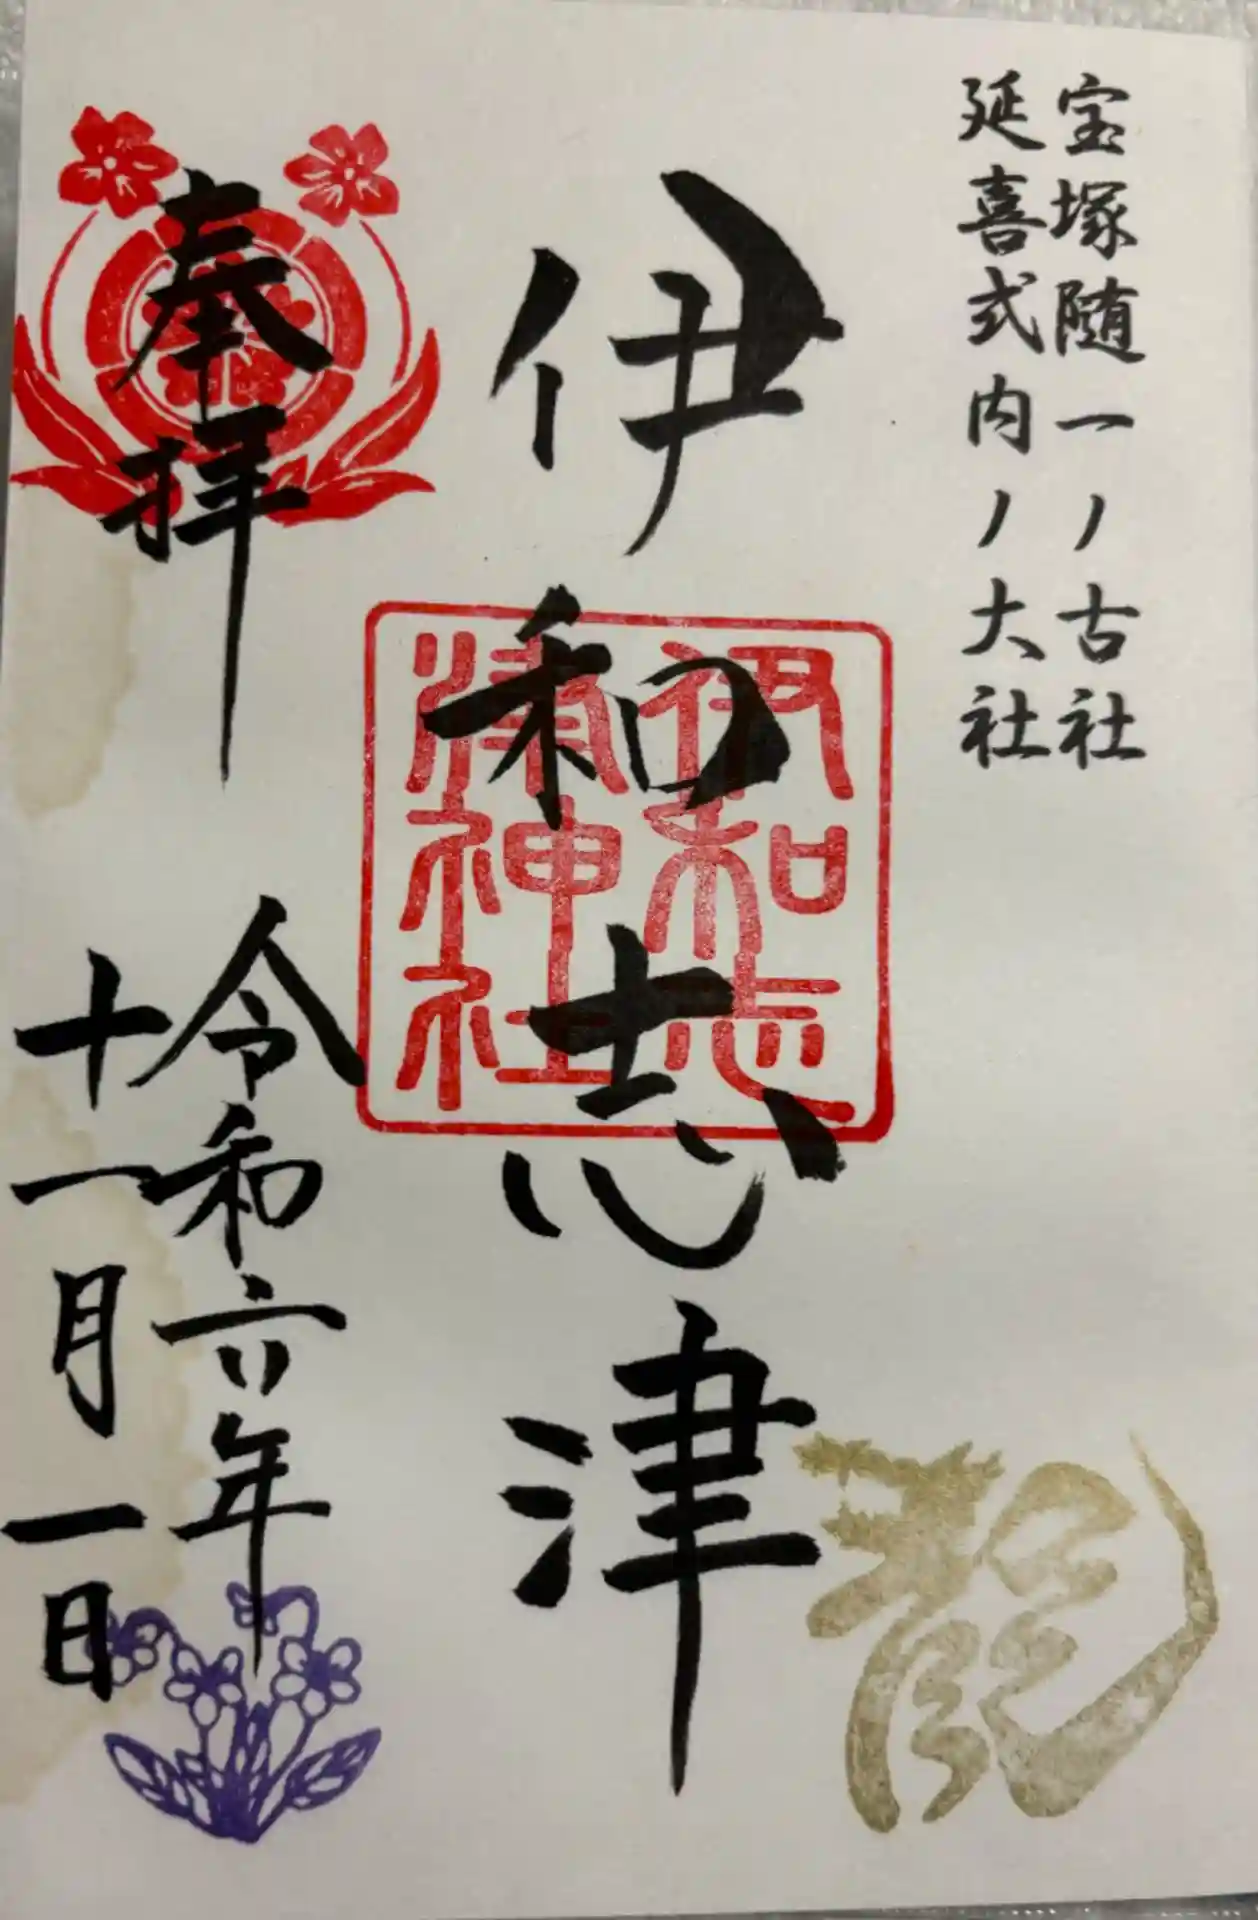 宝塚随一ノ古社
延喜式内ノ大社
伊和志津
伊和志
津神社
奉拝
令和六年
十一月一日
龍